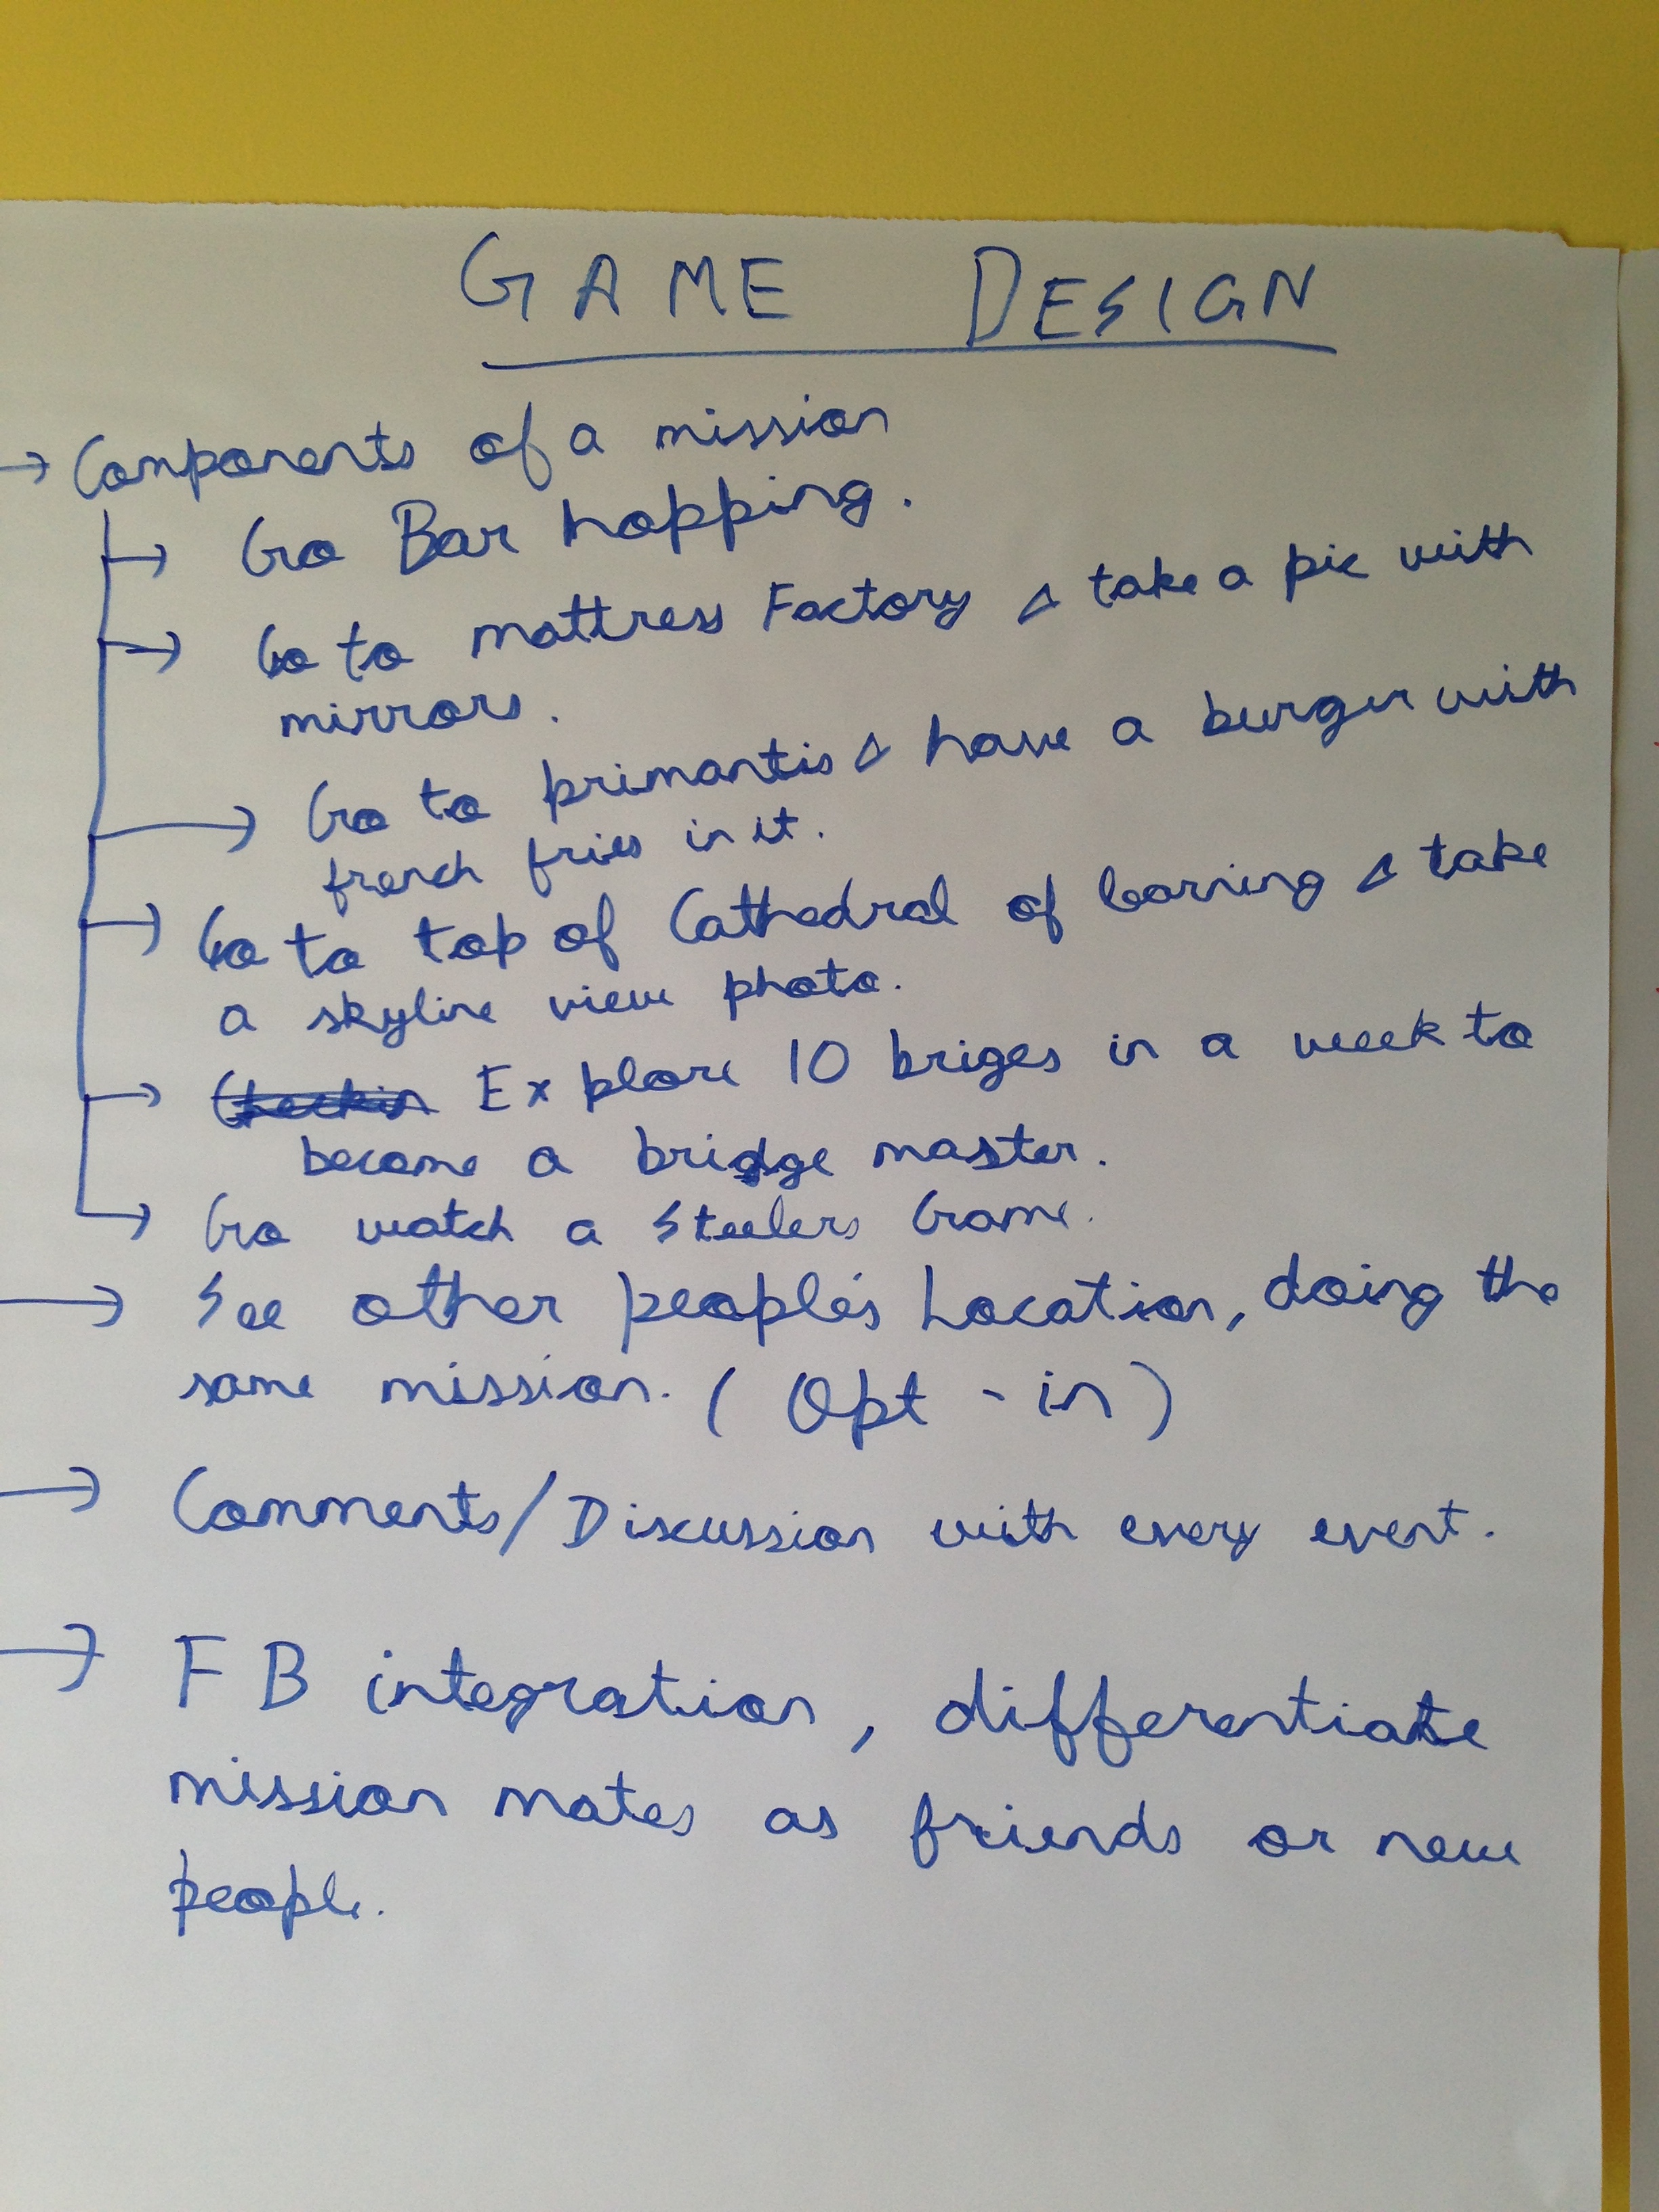 GAME DESIGN
→ Components of a mission
→ Go Bar hopping.
→ Go to mattress Factory & take a pic with
mirrors.
→ Go to primantis & have a burger with
french fries in it.
→ Go to top of Cathedral of learning & take
a skyline view photo.
→ Checkin Explore 10 briges in a week to
become a bridge master.
→ Go watch a Steelers Game.
→ See other people's Location, doing the
same mission. (Opt-in)
→ Comments/Discussion with every event.
→ FB integration, differentiate
mission mates as friends or new
people.